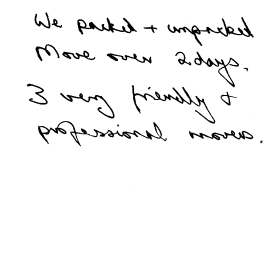 We packed + unpacked
Move over 2 days.
3 very friendly +
professional movers.